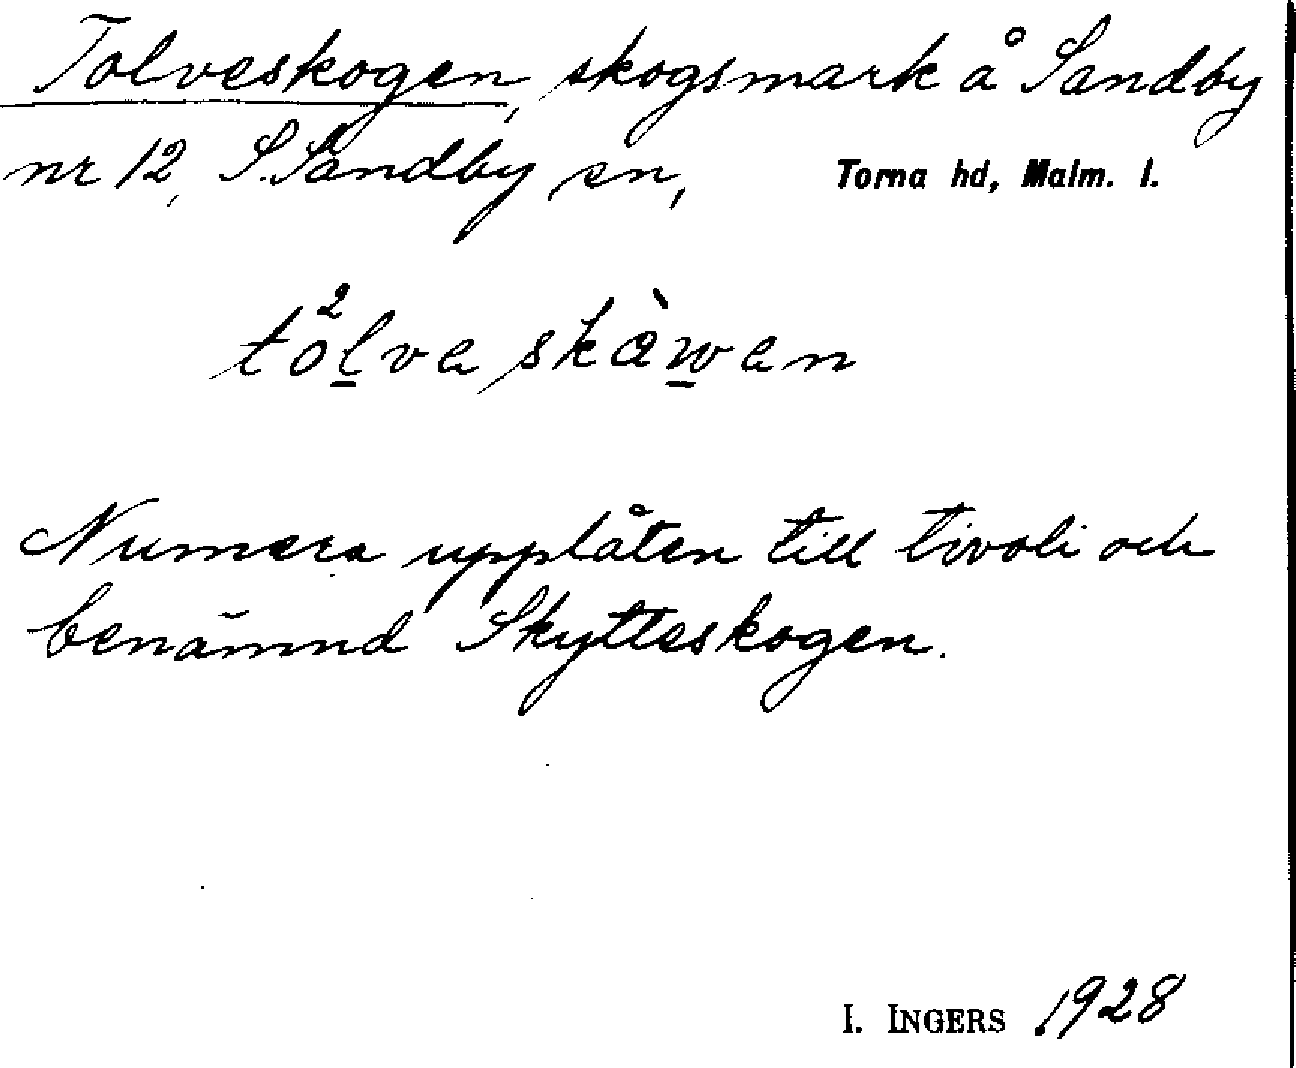 Tolveskogen, skogsmark å Sandby
nr 12, S. Sandby sn, Torna hd, Malm. l.
tö²lva skàwan
Numera upplåten till tivoli och
benämnd Skytteskogen.
I. INGERS 1928